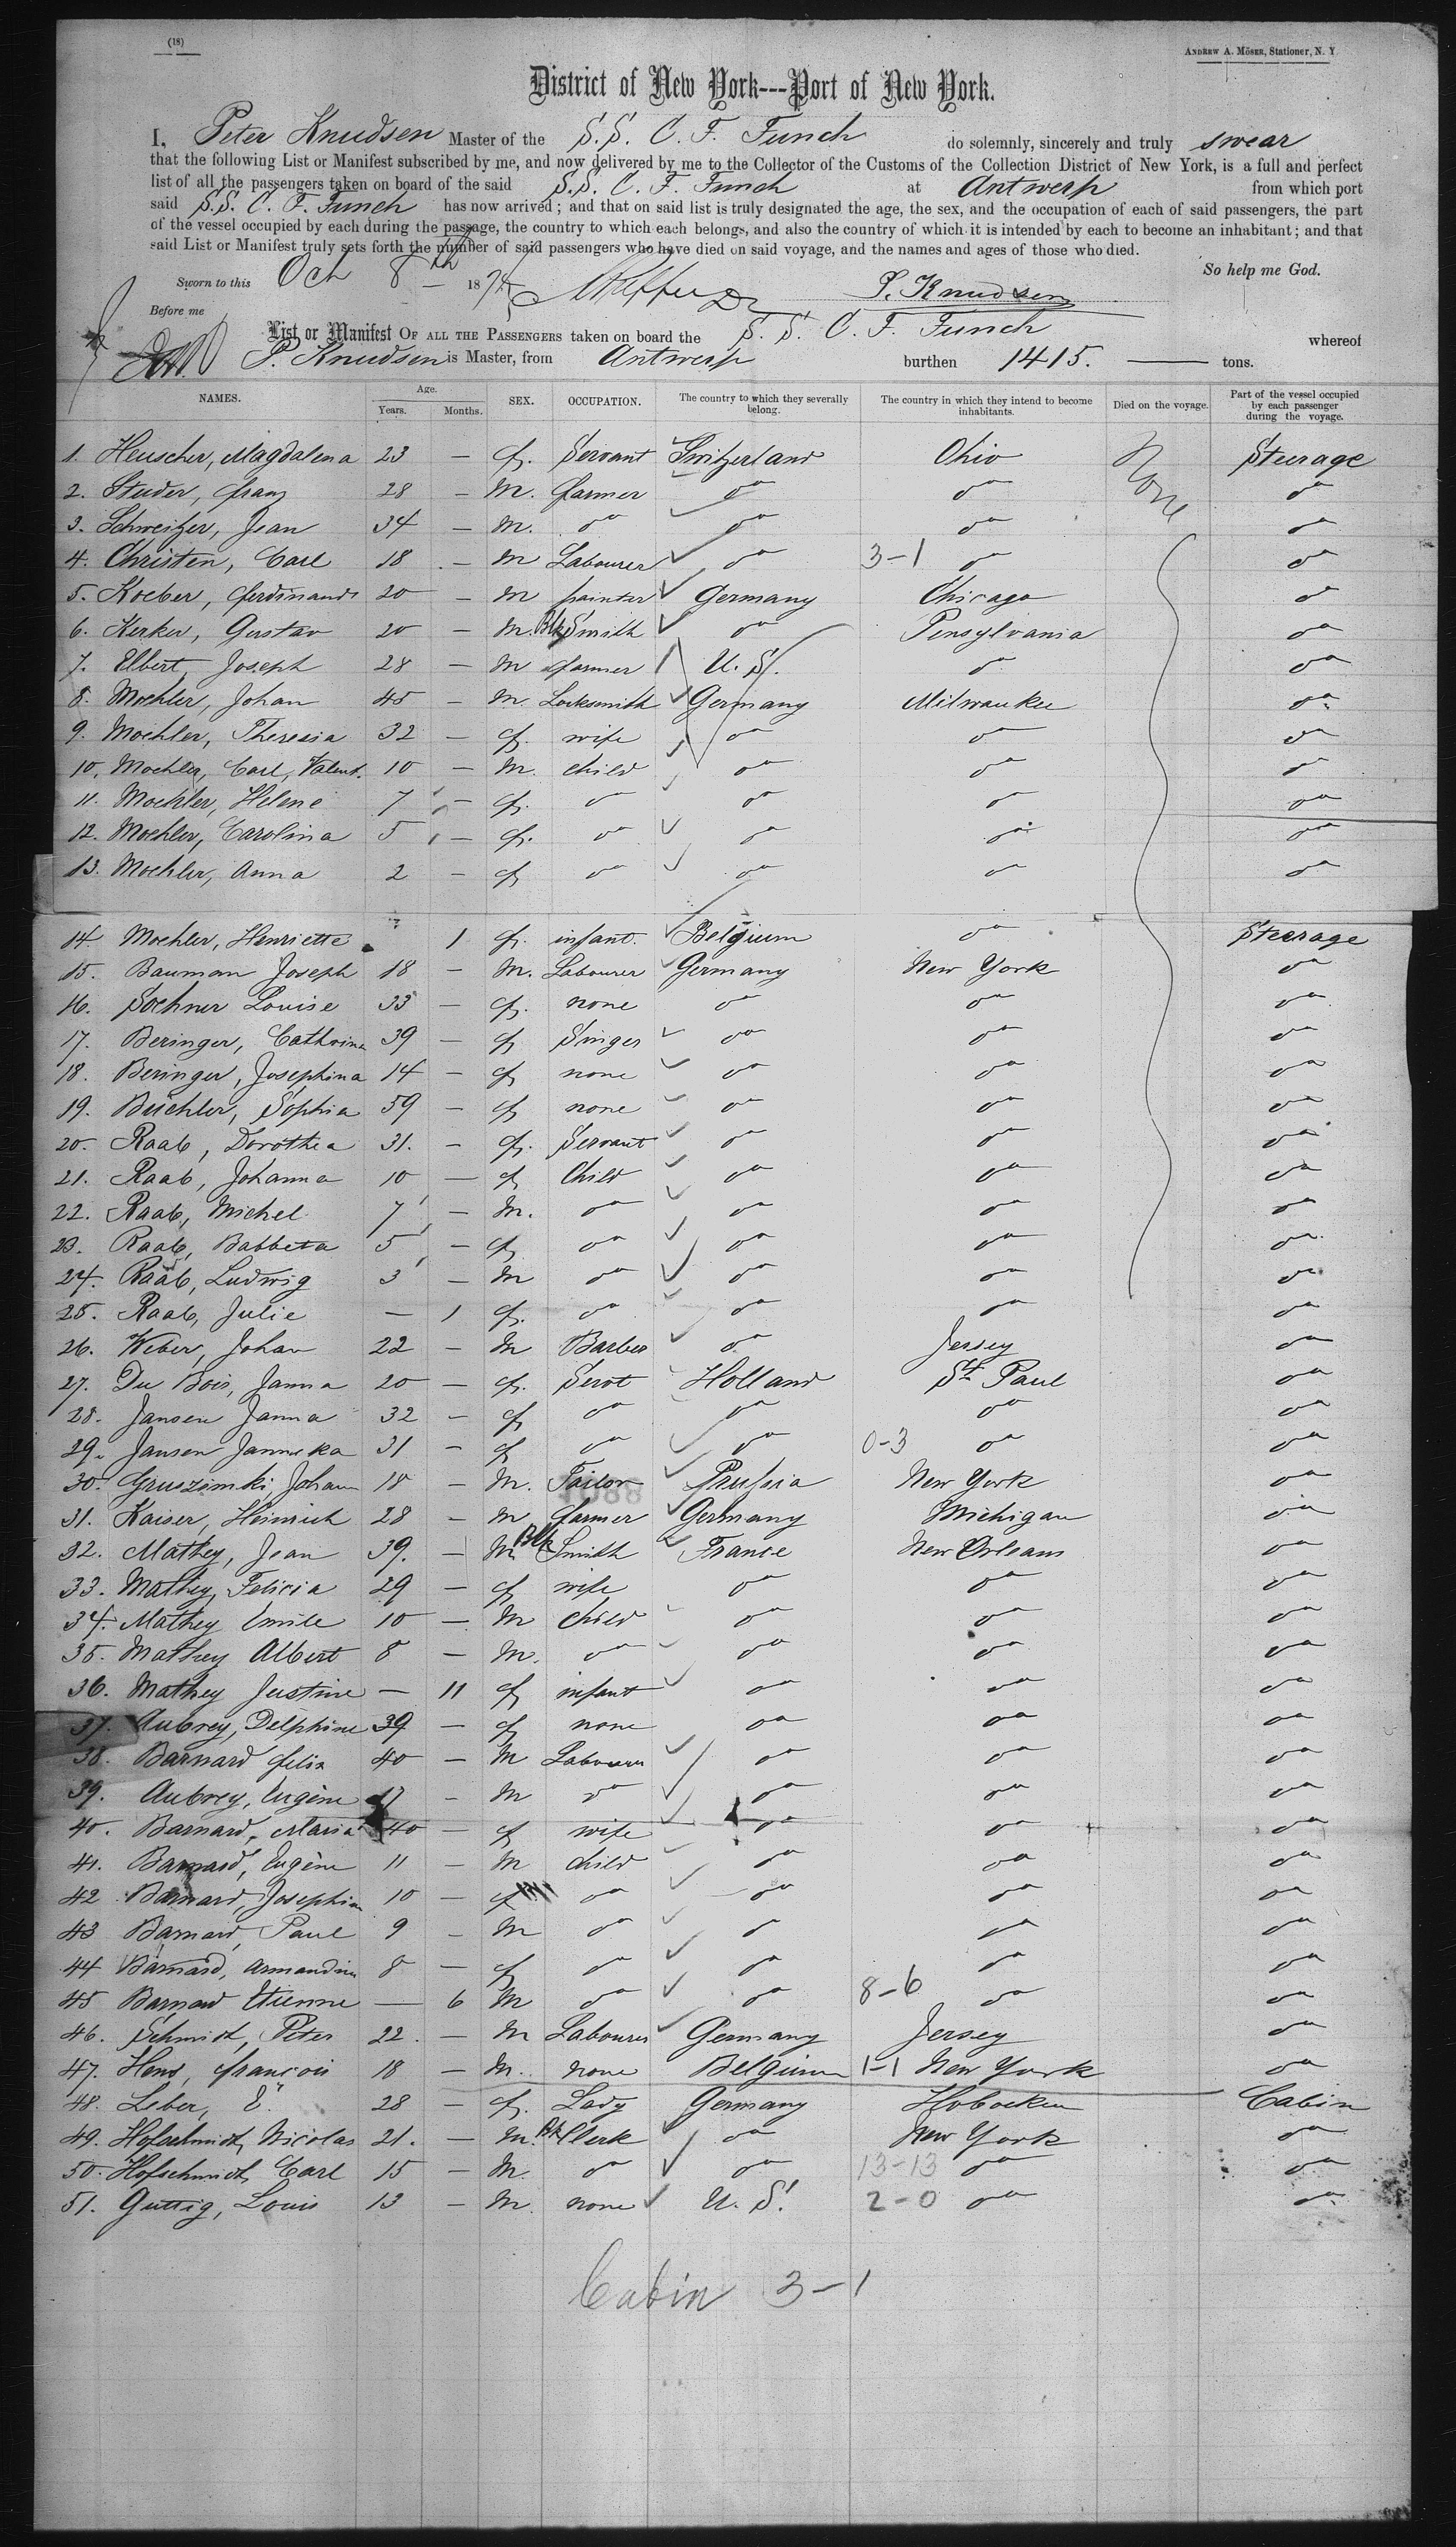 (18)
ANDREW A. MÖSER, Stationer, N. Y.
District of New York---Port of New York.
I, Peter Knudsen Master of the S.S. C. F. Funch do solemnly, sincerely and truly swear
that the following List or Manifest subscribed by me, and now delivered by me to the Collector of the Customs of the Collection District of New York, is a full and perfect
list of all the passengers taken on board of the said S.S. C. F. Funch at Antwerp from which port
said S.S. C. F. Funch has now arrived; and that on said list is truly designated the age, the sex, and the occupation of each of said passengers, the part
of the vessel occupied by each during the passage, the country to which each belongs, and also the country of which it is intended by each to become an inhabitant; and that
said List or Manifest truly sets forth the number of said passengers who have died on said voyage, and the names and ages of those who died.
So help me God.
Sworn to this Oct 8th 18 P. Knudsen
Before me
List or Manifest OF ALL THE PASSENGERS taken on board the S. S. C. F. Funch whereof
P. Knudsen is Master, from Antwerp burthen 1415. tons.
NAMES. Age. Years. Months. SEX. OCCUPATION. The country to which they severally belong. The country in which they intend to become inhabitants. Died on the voyage. Part of the vessel occupied by each passenger during the voyage.
1. Heuscher, Magdalena 23 — f. Servant Switzerland Ohio None Steerage
2. Studer, franz 28 — M. farmer do do do
3. Schweitzer, Jean 34 — M. do do do do
4. Christen, Carl 18 — M Labourer do 3-1 do do
5. Koeber, ferdinand 20 — M painter Germany Chicago do
6. Kerker, Gustav 20 — M. Blk Smith do Pensylvania do
7. Elbert, Joseph 28 — M farmer U. S. do do
8. Moehler, Johan 45 — M. Locksmith Germany Milwaukee do
9. Moehler, Theresia 32 — f. wife do do do
10. Moehler, Carl, Valent. 10 — M. child do do do
11. Moehler, Helene 7 — f. do do do do
12. Moehler, Carolina 5 — f. do do do do
13. Moehler, Anna 2 — f do do do do
14. Moehler, Henriette 1 f. infant. Belgium do Steerage
15. Bauman Joseph 18 — M. Labourer Germany New York do
16. Soehner Louise 33 — f. none do do do
17. Beringer, Cathrina 39 — f Singer do do do
18. Beringer, Josephina 14 — f none do do do
19. Büchler, Sophia 59 — f none do do do
20. Raab, Dorothea 31. — f. Servant do do do
21. Raab, Johanna 10 — f Child do do do
22. Raab, Michel 7 — M. do do do do
23. Raab, Babbeta 5 — f do do do do
24. Raab, Ludwig 3 — M do do do do
25. Raab, Julie — 1 f. do do do do
26. Weber, Johan 22 — M Barber do Jersey do
27. Du Bois, Janna 20 — f. Servt Holland St. Paul do
28. Jansen Janna 32 — f do do do do
29. Jansen Janneka 31 — f do do 0-3 do do
30. Gruszinski, Johann 18 — M. Tailor Prussia New York do
31. Kaiser, Heinrich 28 — M farmer Germany Michigan do
32. Mathey, Jean 39. — M Blk Smith France New Orleans do
33. Mathey, Felicia 29 — f wife do do do
34. Mathey Emile 10 — M child do do do
35. Mathey Albert 8 — M. do do do do
36. Mathey Justine — 11 f infant do do do
37. Aubrey, Delphine 39 — f none do do do
38. Barnard felix 40 — M Labourer do do do
39. Aubrey, Eugène 17 — M do do do do
40. Barnard, Maria 40 — f wife do do do
41. Barnard, Eugène 11 — M child do do do
42 Barnard, Josephine 10 — f do do do do
43 Barnard, Paul 9 — M do do do do
44 Barnard, Armandine 8 — f do do do do
45 Barnard Etienne — 6 M do do 8-6 do do
46. Schmidt, Peter 22. — M Labourer Germany Jersey do
47. Hens, francois 18 — M. none Belgium 1-1 New York do
48. Leber, E. 28 — f. Lady Germany Hoboken Cabin
49. Hofschmidt, Nicolas 21. — M. Clerk do New York do
50. Hofschmidt, Carl 15 — M. do do 13-13 do do
51. Guttig, Louis 13 — M. none U. S. 2-0 do do
Cabin 3-1